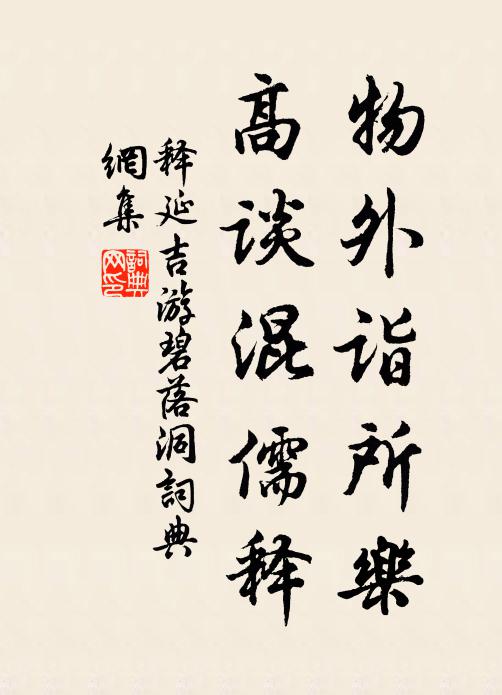 物外诣所樂
高谈混儒释
释延吉游碧落洞詞典
網集
詞典
网印